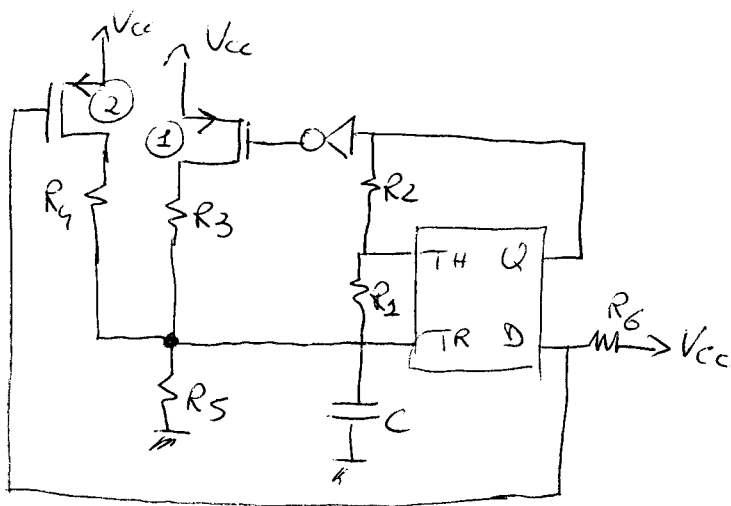 Vcc
Vcc
2
1
R4
R3
R2
TH Q
R1
TR D
R6
Vcc
R5
C